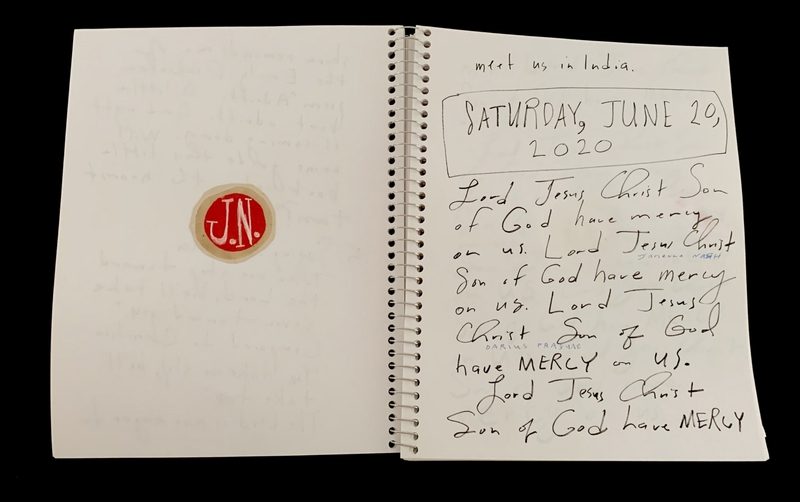 J.N.
meet us in India.
SATURDAY, JUNE 20,
2020
Lord Jesus Christ Son
of God have mercy
on us. Lord Jesus Christ
Son of God have mercy
on us. Lord Jesus
Christ Son of God
DARIUS
have MERCY on US.
Lord Jesus Christ
Son of God have MERCY